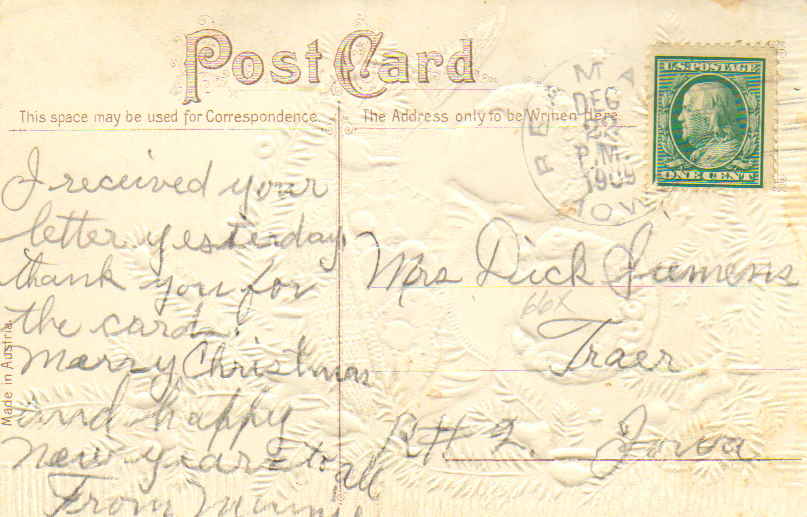 Post Card
This space may be used for Correspondence.
The Address only to be Written Here.
U.S. POSTAGE
ONE CENT
DEC
22
P.M.
1909
IOWA
I received your
letter yesterday,
thank you for
the card.
Marry Christmas
and happy
New year to all
From Minnie
Mrs Dick
66X
Traer
R# 2. Iowa
Made in Austria.